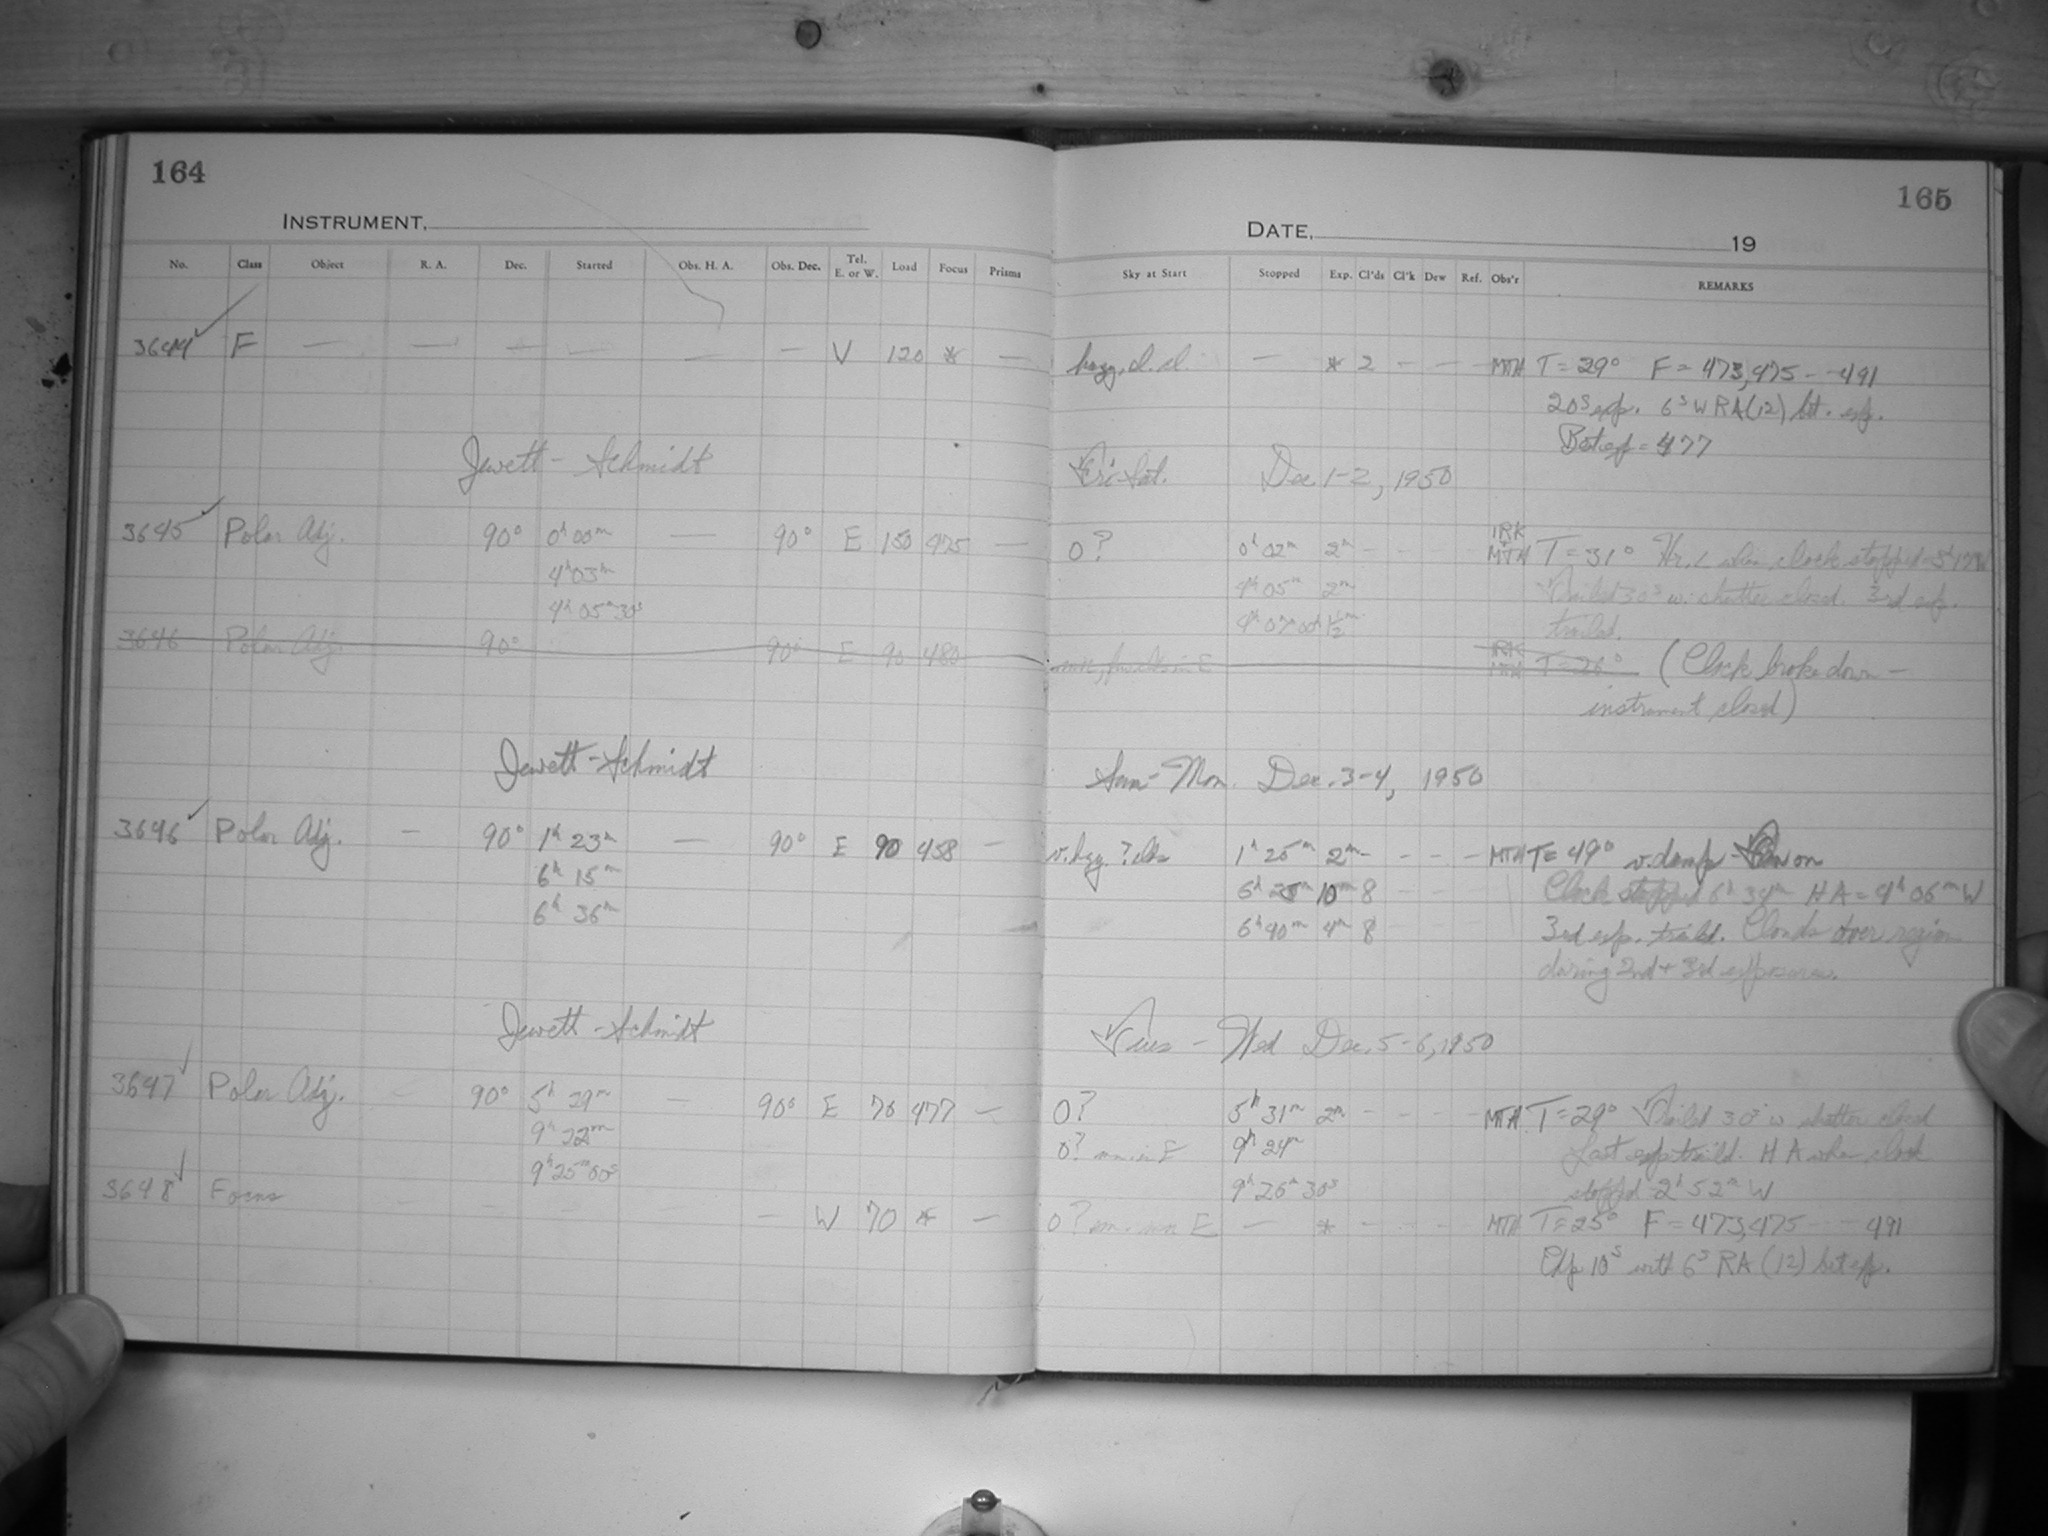 164
165
INSTRUMENT,
DATE, 19
No. Class Object R. A. Dec. Started Obs. H. A. Obs. Dec. Tel. E. or W. Load Focus Prisms Sky at Start Stopped Exp. Cl'ds Cl'k Dew Ref. Obs'r REMARKS
3644 F — — — — — — V 120 * — hazy, cl. cl. — * 2 - - - MTH T = 29° F = 473,475 - - 491
20s exp. 6s W RA (12) bet. exp.
Best exp = 477
Jewett-Schmidt Fri-Sat. Dec. 1-2, 1950
3645 Polar Adj. 90° 0h 00m — 90° E 150 475 — 0? 0h 02m 2m - - - IRK + MTH T = 31° when clock stopped
4h 03m 4h 05m 2m Trailed 30s w. shutter closed. 3rd exp.
4h 05m 30s 4h 07m 00s 1 1/2m trailed.
3646 Polar Adj. 90° 90° E 90 480 in E IRK MTH T = 26° (Clock broke down -
instrument closed)
Jewett-Schmidt Sun-Mon. Dec. 3-4, 1950
3646 Polar Adj. — 90° 1h 23m — 90° E 90 458 — v. hzy. ? cl. 1h 25m 2m - - - MTH T = 49° v. damp - on
6h 15m 6h 25m 10m 8 - - Clock stopped 6h 34m HA = 4h 06m W
6h 36m 6h 40m 4m 8 - - 3rd exp. trailed. Clouds over region
during 2nd + 3rd exposures.
Jewett-Schmidt Tues - Wed Dec. 5-6, 1950
3647 Polar Adj. - 90° 5h 29m — 90° E 70 477 — 0? 5h 31m 2m - - - MTH T = 29° Trailed 30s w shutter closed
9h 22m 0? in E 9h 24m Last exp trailed. HA when clock
9h 25m 00s 9h 26m 30s stopped = 2h 52m W
3648 Focus - - - - - — W 70 * — 0? E — * - - - MTH T = 25° F = 473,475 - - - 491
Exp 10s with 6s RA (12) bet exp.